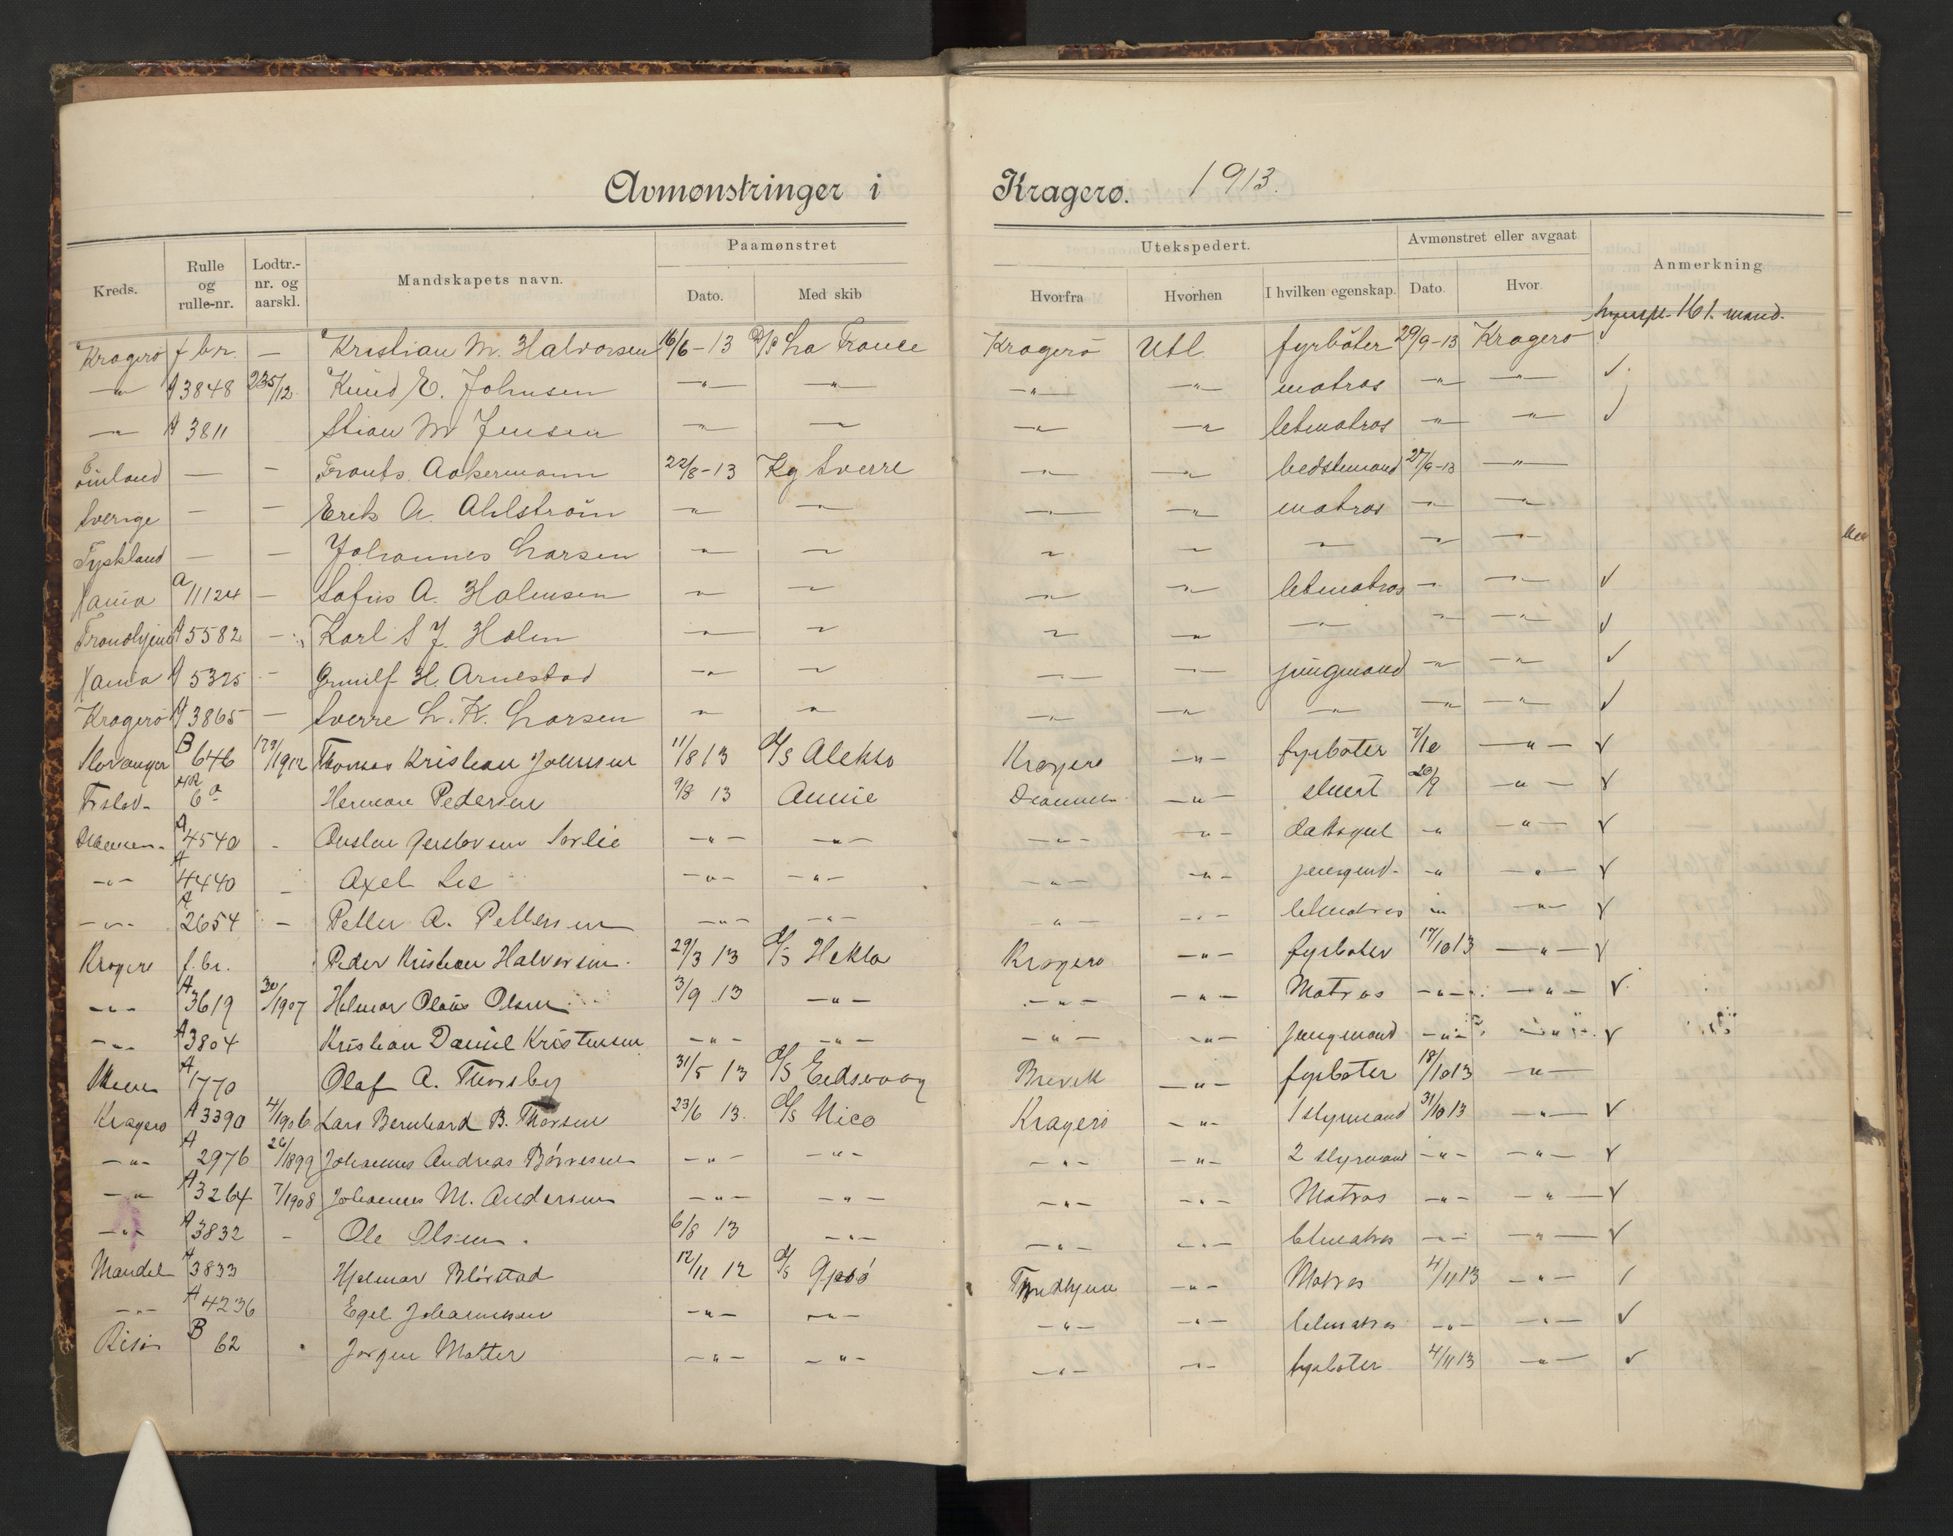 Avmønstringer i Kragerø. 1913.
Paamønstret Utekspedert. Avmønstret eller avgaat
Kreds. Rulle og rulle-nr. Lodtr.-nr. og aarskl. Mandskapets navn. Dato. Med skib Hvorfra Hvorhen I hvilken egenskap. Dato. Hvor. Anmerkning
161. mand.
Kragerø f br. — Kristian M. Halvorsen 16/6-13 D/S La France Kragerø Utl. fyrbøter 29/9-13 Kragerø √
—"— A 3848 235/12 Knud E. Johnsen —"— —"— —"— —"— matros —"— —"— √
—"— A 3811 Stian M Jensen —"— —"— —"— —"— letmatros —"— —"— √
Finland — — Frants Aakermann 22/8-13 Kg Sverre —"— —"— bedstemand 27/9-13 —"—
Sverige — — Erik A. Ahlstrøm —"— —"— —"— —"— matros —"— —"—
Tyskland — — Johannes Larsen —"— —"— —"— —"— —"— —"— —"—
Xania A 11124 — Sofus A. Halmsen —"— —"— —"— —"— letmatros —"— —"— √
Trondhjem A 5582 — Karl S J. Holm —"— —"— —"— —"— —"— —"— —"— √
Xania A 5325 — H. Arnestad —"— —"— —"— —"— jungmand —"— —"— √
Kragerø A 3865 — Sverre L. K. Larsen —"— —"— —"— —"— —"— —"— —"— √
Stavanger B 646 /1912 Thomas Kristian Johnsen 11/8 13 D/S Alekto Kragerø —"— fyrbøter 7/10 —"— √
6 Herman Pedersen 9/8 13 Annie Drammen —"— stuert 23/9 —"— √
Drammen A 4540 - Sørlie —"— —"— —"— —"— —"— —"— √
—"— A 4440 - Axel Lie —"— —"— —"— —"— jungmd. —"— —"— √
—"— A 2654 - Petter A. Pettersen —"— —"— —"— —"— letmatros —"— —"— √
Kragerø f. br. Peder Kristian Halvorsen 29/3 13 D/S Hekla Kragerø —"— fyrbøter 17/10 13 —"— √
—"— A 3619 30/1907 Helmar Olaus Olsen 3/9 13 —"— —"— —"— Matros —"— —"— √
—"— A 3804 Kristian Daniel Kristensen —"— —"— —"— —"— Jungmand —"— —"— √
Skien A 1770 Olaf A. Thorsby 31/5 13 D/S Eidsvaag Brevik —"— fyrbøter 18/10 13 —"—
Kragerø A 3390 4/1906 Lars Bernhard B. Thorsen 23/6 13. D/S Nico Kragerø —"— 1 styrmand 31/10 13 —"— √
—"— A 2976 26/1899 Johannes Andreas Børresen —"— —"— —"— —"— 2 styrmand —"— —"— √
—"— A 3264 7/1908 Johannes M. Andersen —"— —"— —"— —"— Matros —"— —"— √
—"— A 3832 - Ole Olsen. 6/8 13 —"— —"— —"— letmatros —"— —"— √
Mandal A 3833 Hjalmar Blørstad 12/11 12 D/S Gjesø Trondhjem —"— Matros 4/11 13 —"— √
—"— A 4236 Egil Johannesen —"— —"— —"— —"— letmatros —"— —"— √
Risør B 62 Jørgen Molter —"— —"— —"— —"— fyrbøter 4/11 13 —"— √